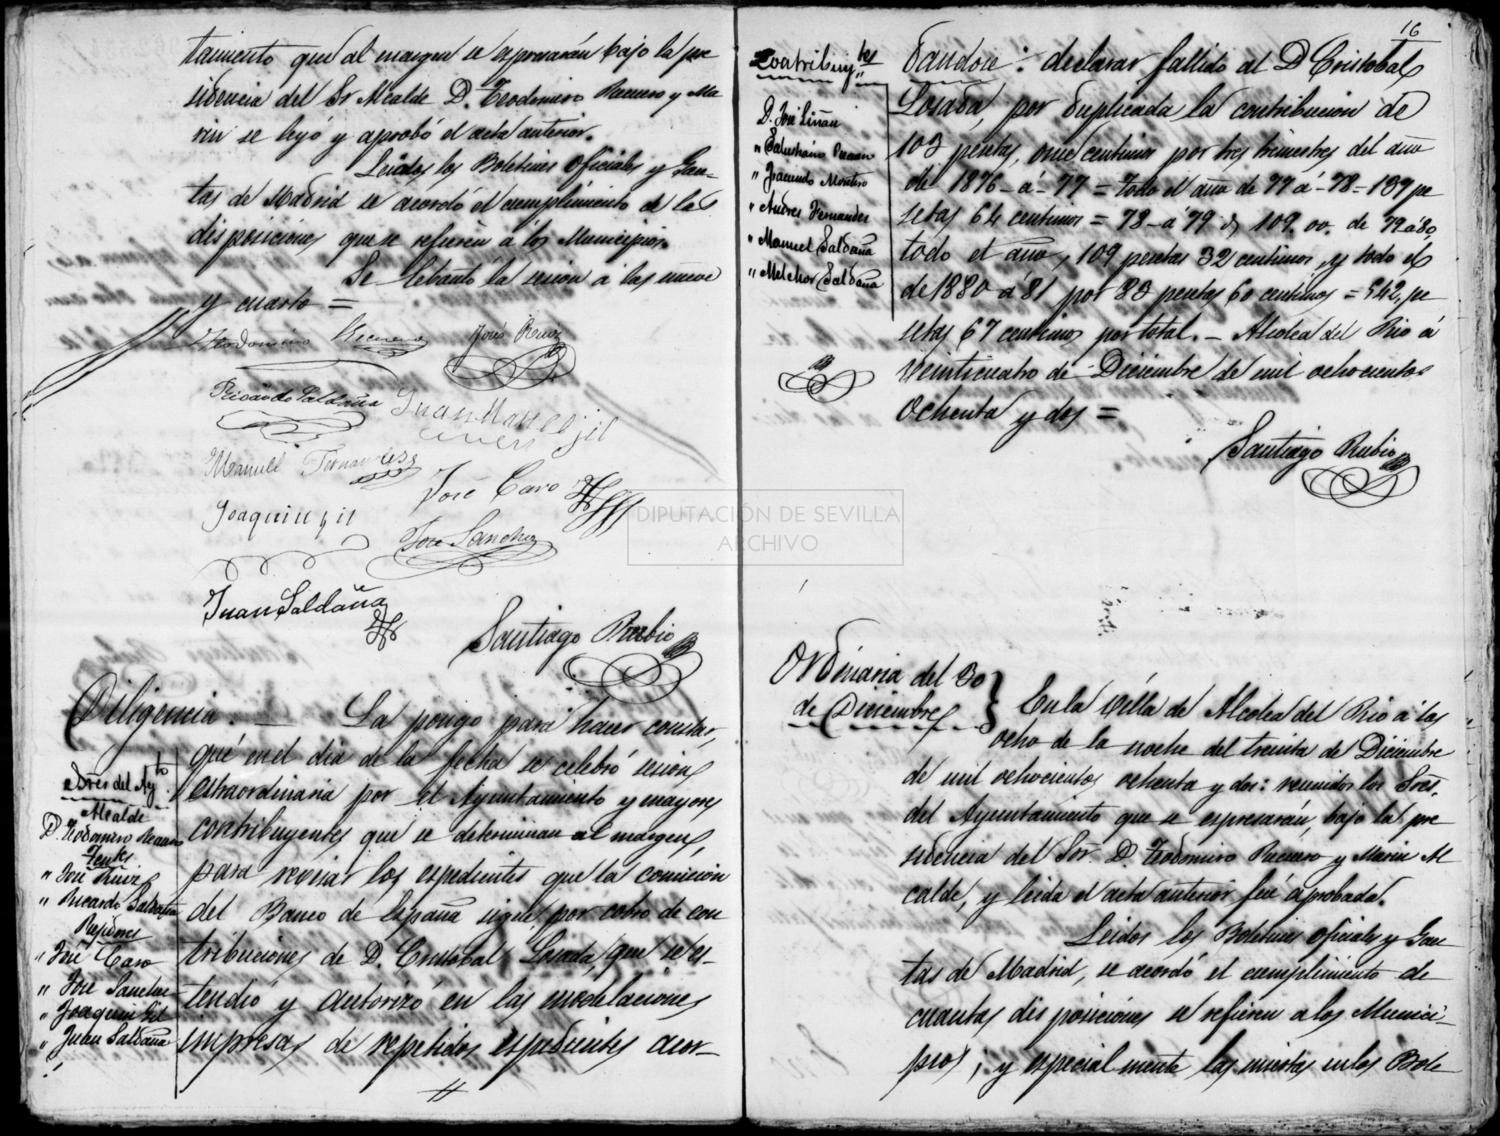 tamiento que al margen se espresarán bajo la pre
sidencia del Sr Alcalde D. Teodomiro Recuero y Ma
rin se leyó y aprobó el acta anterior.
Leidos los Boletines Oficiales y Gace-
tas de Madrid se acordó el cumplimiento de las
disposiciones que se refieren a los Municipios.
Se lebantó la sesion á las nueve
y cuarto =
Teodomiro Recuero José Ruiz
Ricardo Saldaña Juan Man^el Gil
Manuel Fernandez
José Caro
Joaquin Gil
José Sanchez
Juan Saldaña
Santiago Rubio
Diligencia. — La pongo para hacer constar,
qué en el dia de la fecha se celebró sesion
estraordinaria por el Ayuntamiento y mayores
contribuyentes que se determinan al margen,
para revisar los espedientes que la comision
del Banco de España sigue por cobro de con
tribuciones de D. Cristobal Losada, que se es-
tendió y autorizó en las modelaciones
impresas de repetidos espedientes acor-
Sres del Ay^to
Alcalde
D. Teodomiro Recuero
Tentes
" José Ruiz
" Ricardo Saldaña
Rejidores
" José Caro
" José Sanchez
" Joaquin Gil
" Juan Saldaña
16
Contribuy^tes
D. José Liñan
" Salustiano Recuero
" Facundo Montero
" Andres Fernandez
" Manuel Saldaña
" Melchor Saldaña
dandose: declarar fallido al D Cristobal
Losada, por duplicada la contribucion de
103 pesetas, once centimos por tres trimestres del año
de 1876-á-77 = todo el año de 77 á-78=137 pe
setas 64 centimos = 78-á 79 109.00. de 79 á 80,
todo el año, 109 pesetas 32 centimos, y todo el
de 1880 á 81 por 83 pesetas 60 centimos = 542, pe
setas 67 centimos por total. - Alcolea del Rio á
veinticuatro de Diciembre de mil ochocientos
ochenta y dos =
Santiago Rubio
DIPUTACIÓN DE SEVILLA
ARCHIVO
Ordinaria del 30
de Diciembre
En la Villa de Alcolea del Rio á las
ocho de la noche del treinta de Diciembre
de mil ochocientos ochenta y dos: reunidos los Sres.
del Ayuntamiento que se espresarán, bajo la pre
sidencia del Sor. D. Teodomiro Recuero y Marin Al
calde, y leida el acta anterior fué aprobada.
Leidos los Boletines oficiales y Gace
tas de Madrid, se acordó el cumplimiento de
cuantas disposiciones se refieren a los Munici-
pios; y especialmente las insertas en los Bole